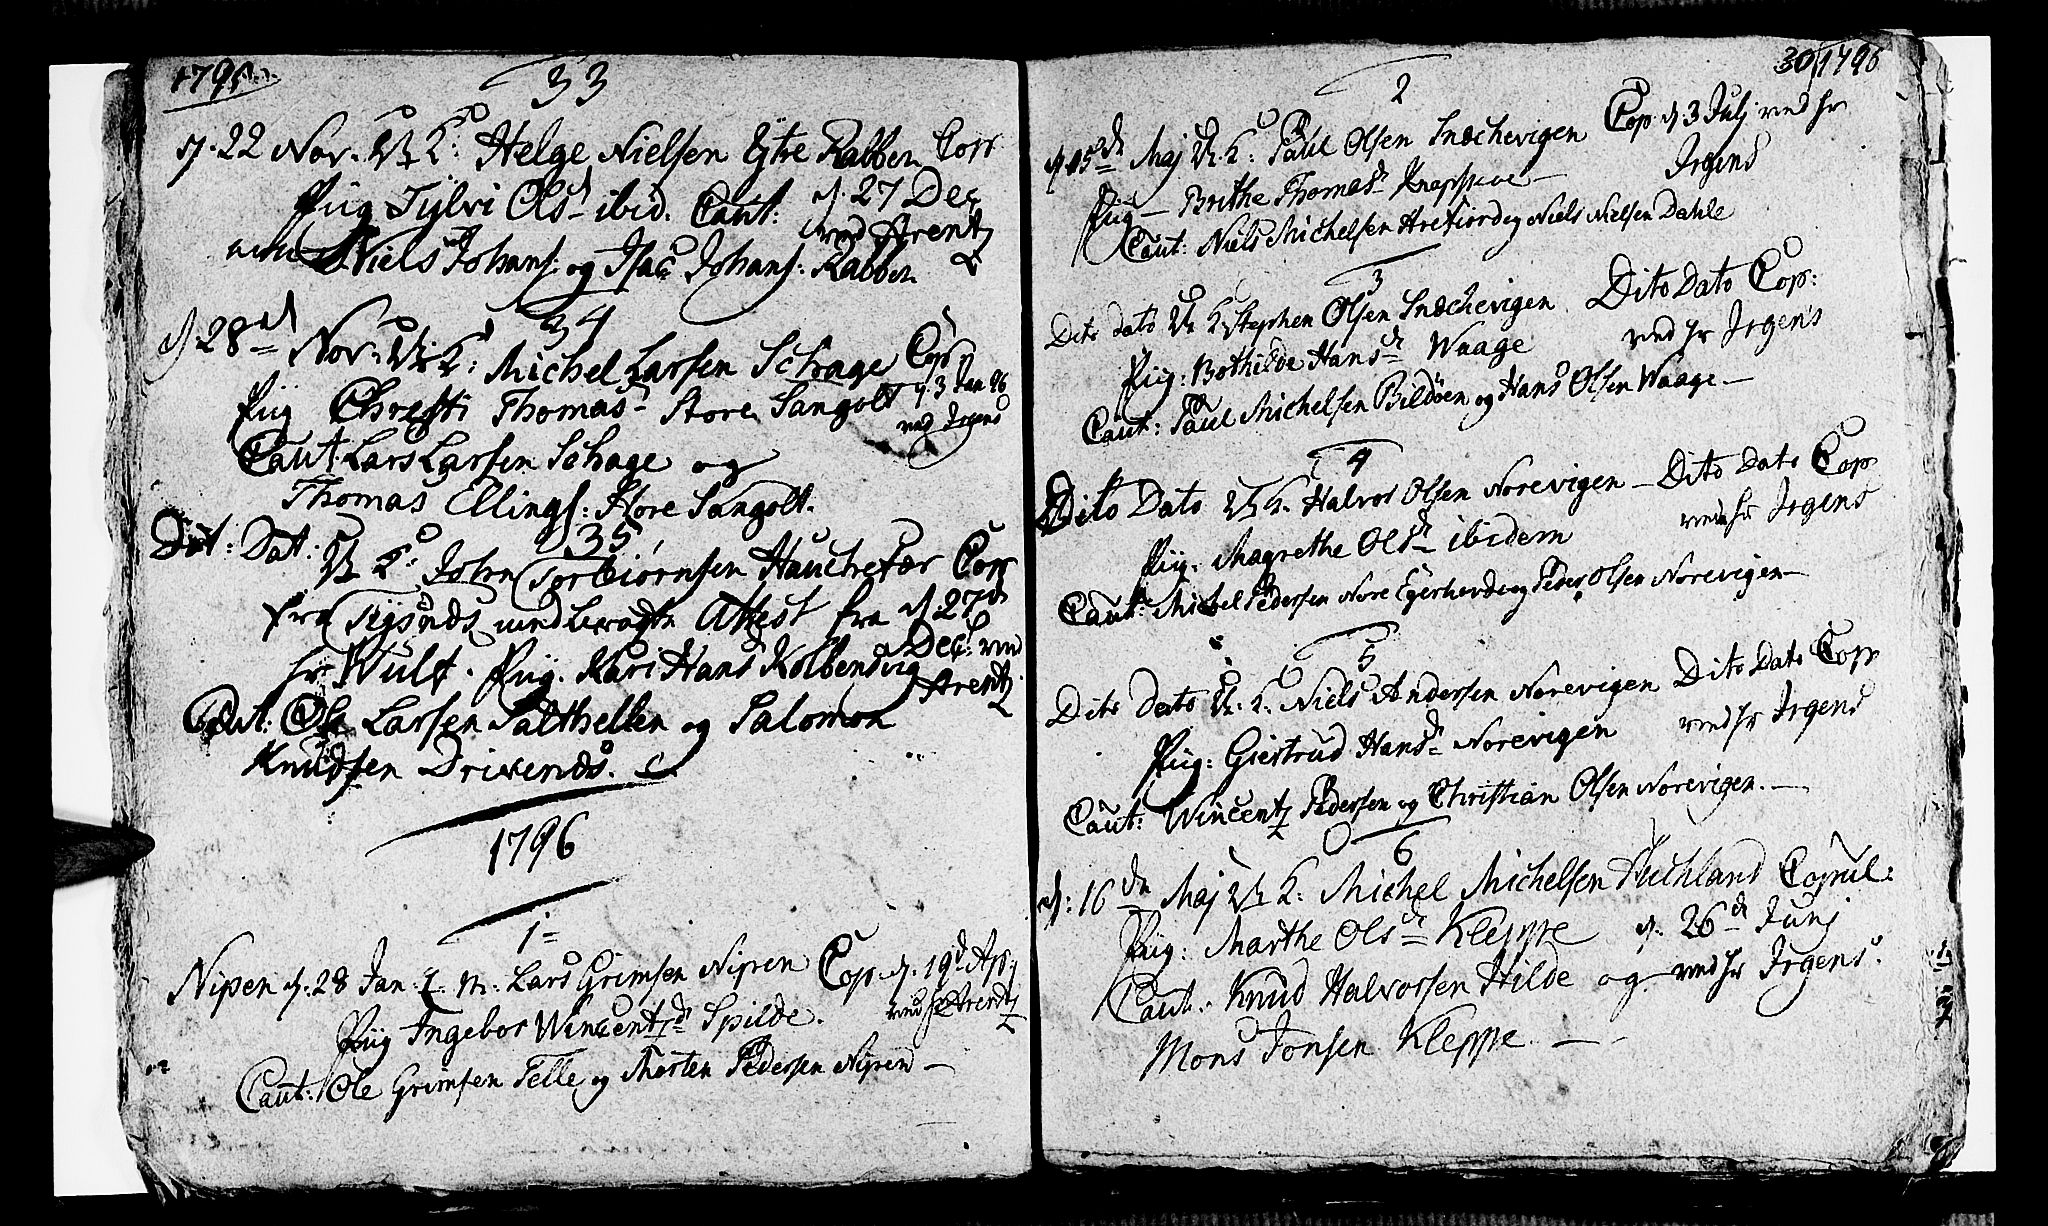 1795
33
d. 22 Nov. U. K: Helge Nielsen Ytre Rabben Cop
Pig Sylvi Ols d ibid. Caut: d. 27 Dec
ved Arentz
Niels Johans: og Isac Johans: Rabben
34
d. 28 d Nov. U. K: Michel Larsen Schage Cop
Pig Christi Thomas d Store Sangolt d. 3 Jan 96
ved Irgens
Caut. Lars Larsen Schage og
Thomas Ellings: Store Sangolt.
35
Dit: Dat: U. K: John Torbiørnsen Cop
fra Tysnes medbragte Attest fra d. 27 d
hr Wulf. Pig. Kari Hans d Kolbensvig Dec: ved
Arentz
Caut: Ole Larsen Salthellen og Salomon
Knudsen Drivenes.
1796
1
Nipen d. 28 Jan: E. M: Lars Grimsen Nipen Cop. d. 19 d Apr
Pig Ingebor Wincentz d Spilde. ved hr Arentz
Caut: Ole Grimsen Telle og Morten Pedersen Nipen
30 1796
2
d. 15 d Maj U. K: Paul Olsen Snechevigen Cop. d. 3 Julj ved hr
Irgens
Pig Brithe Thomas d Knapskoe
Caut: Niels Michelsen Arefiord og Niels Nielsen Dahle
3
Dito Dato U. K: Stephen Olsen Snechevigen Dito Dato Cop:
ved hr Irgens
Pig: Bothilde Hans d Waage
Caut: Paul Michelsen Bildøen og Hans Olsen Waage
4
Dito Dato U. K. Halvor Olsen Norevigen Dito Dato Cop
ved hr Irgens
Pig: Magrethe Ols d ibidem
Caut: Michel Pedersen Nore og Peder Olsen Norevigen
5
Dito Dato U. K. Niels Andersen Norevigen Dito Dato Cop
ved hr Irgens
Pig: Giertrud Hans d Norevigen
Caut: Wincentz Pedersen og Christian Olsen Norevigen.
6
d: 16 d Maj U. K: Michel Michelsen Copul:
Pig: Marthe Ols d Kleppe d. 26 d Junj
Caut: Knud Halvorsen Hilde og ved hr Irgens.
Mons Jonsen Kleppe